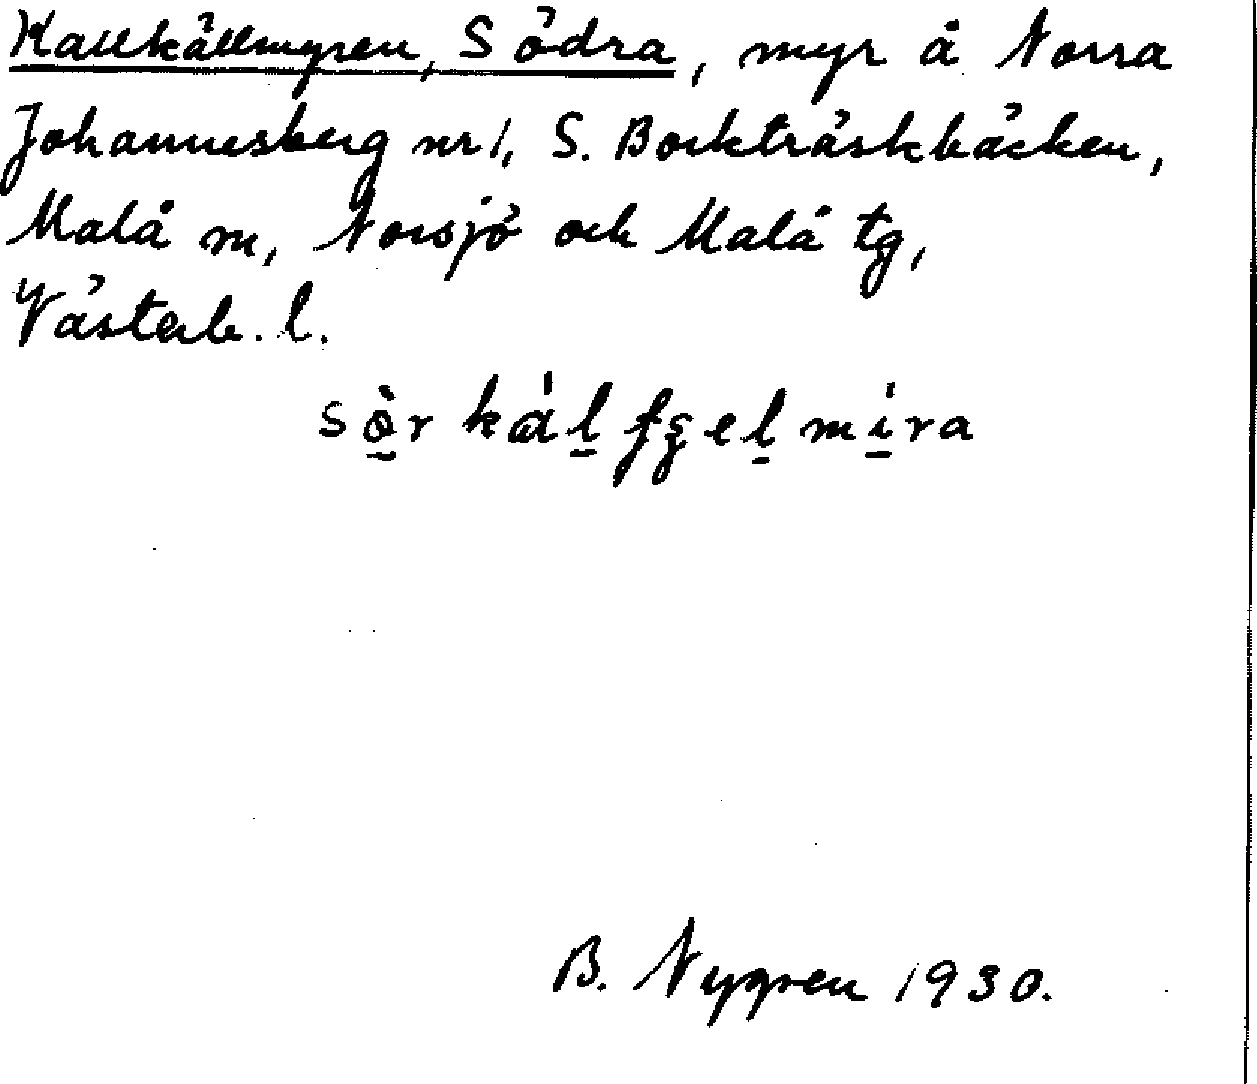 Kallkällmyren, Södra, myr å Norra
Johannesberg nr 1, S. Bockträskbäcken,
Malå m, Norsjö och Malå tg,
Västerb. l.
B. Nygren 1930.